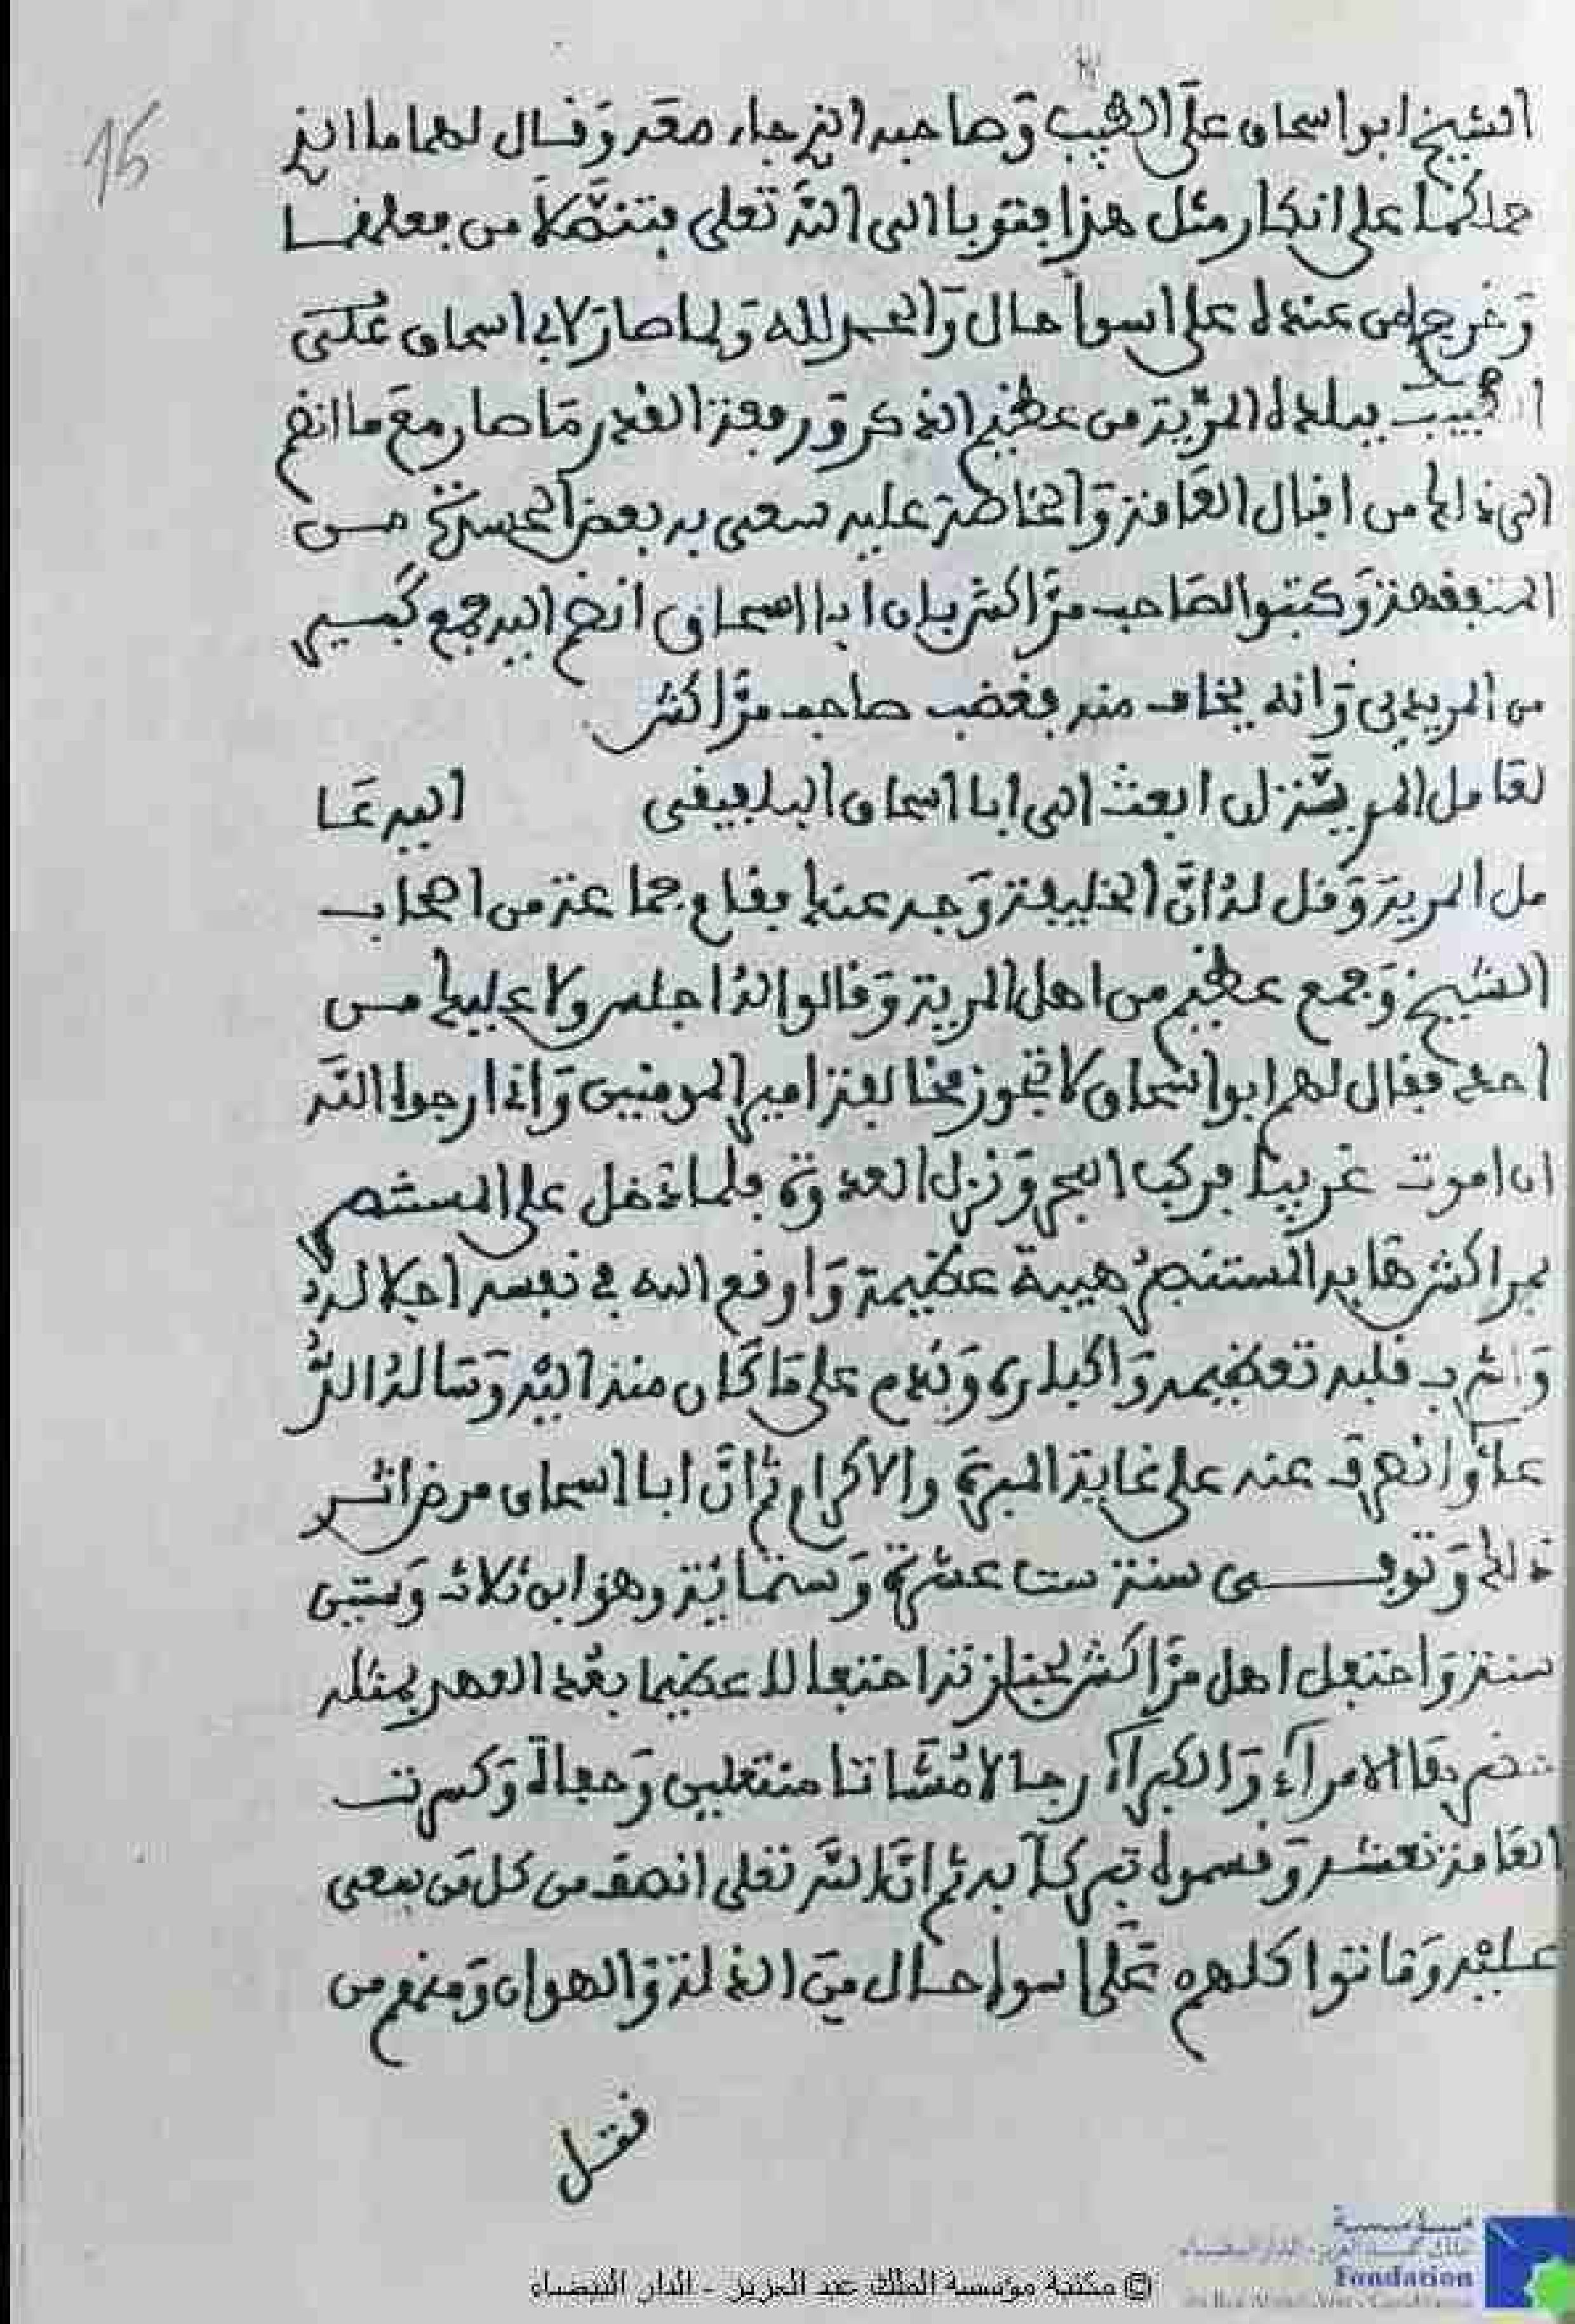 15
الشيخ ابوا اسحاق على الطبيب وَصاحبه الذي جاء معه وَقال لهما ما الذي
حملكما على انكار مثل هذا فتوبا الى الله تعلى من فعلكما
وَخرجا من عنده على اسوأ حال وَالحمد لله وَلما صار لابي اسحاق
ببلده المريّة من عظيم الذكر وَرفعة القدر مَا صار مع ما انضم
الى ذالك من اقبال العامة وَالخاصة عليه سعى به بعض الحسدة مـن
المتفقهة وَكتبوا لصَاحب مرَّاكش بان ابا اسحاق انضم اليه جمع كبيـر
من المريدين وَانه يخاف منه فغضب صاحب مرَّاكش
لعَامل المرية ان ابعث الى ابا اسحاق البلفيقى اليه عَـا
مل المرية وَقل لهُ انَّ الخليفة وَجه عنك جماعة من اصحاب
الشيخ وَجمع عظيم من اهل المرية وَقالوا لهُ اجلس ولا عليك مـن
احد فقال لهم ابوا اسحاق لا تجوز مخالفة امير المومنين وَانا ارجوا اللَّه
ان اموت غريبا فركب البحر وَنزل العدوة فلما دَخل على المستنصر
بمراكش هابه المستنصر هيبة عظيمة وَاوقع الله في نفسه اجلالهُ
وَاشرب قلبه تعظيمه وَاكباره وَندم على مَا كَان منه اليْه وَسَاله الدُّ
عاَ وَانصرف عنه على غاية المبرة والاكرام ثم انَّ ابا اسحاق مرض اثـر
ذالك وَتوفـــى سنة ست عشرة وَستمائة وهوَ ابن ثلاث وَستين
سنة وَاحتفل اهل مرَّاكش لجنازته احتفالا عظيما بعُد العهد بمثله
حضرهَا الامرآء وَالكبرآء رجالا مُشَاتا منتعلين وَحفاة وَكسرت
العَامة نعشه وَقسموه تبركاً به ثم انَّ اللَّه تعَلى انصف من كل مَن سعى
عـليْه وَمَاتوا كلهم عَلَى اسوإ حـال مِنَ الذلة وَالهوان وَمنهم من
قتـل
© مكتبة مؤسسة الملك عبد العزيز - الدار البيضاء
Fondation